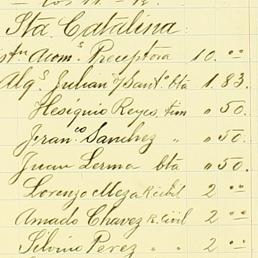 Sta. Catalina:
Preceptora 10. 00
Alqs Julian y Santos bta 1. 83.
Hesiquio Reyes, tim „ 50.
Franco Sanchez „ „ 50.
Juan Lerma bta „ 50.
Lorenzo Meza R. civil 2 00
Amado Chavez R. civil 2 00
Silvino Perez „ „ 2 00